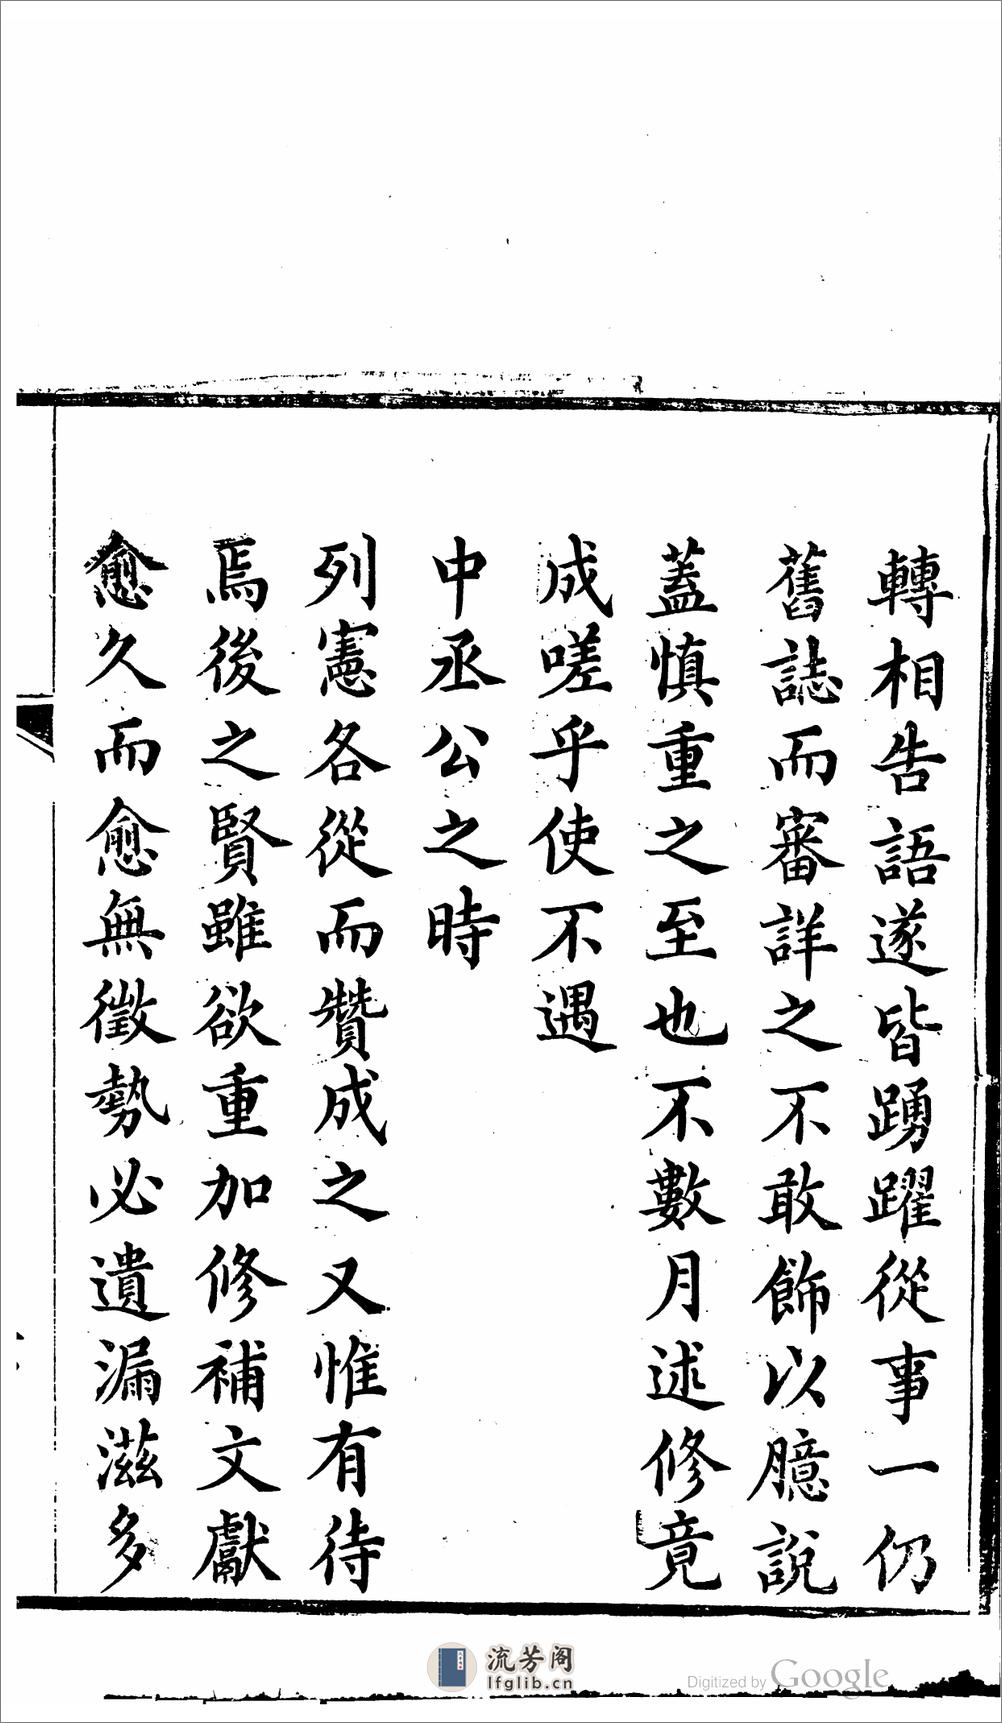 轉相告語遂皆踴躍從事一仍
舊誌而審詳之不敢飾以臆說
蓋慎重之至也不數月述修竟
成嗟乎使不遇
中丞公之時
列憲各從而贊成之又惟有待
焉後之賢雖欲重加修補文獻
愈久而愈無徵勢必遺漏滋多
流芳阁
lfglib.cn
Digitized by Google